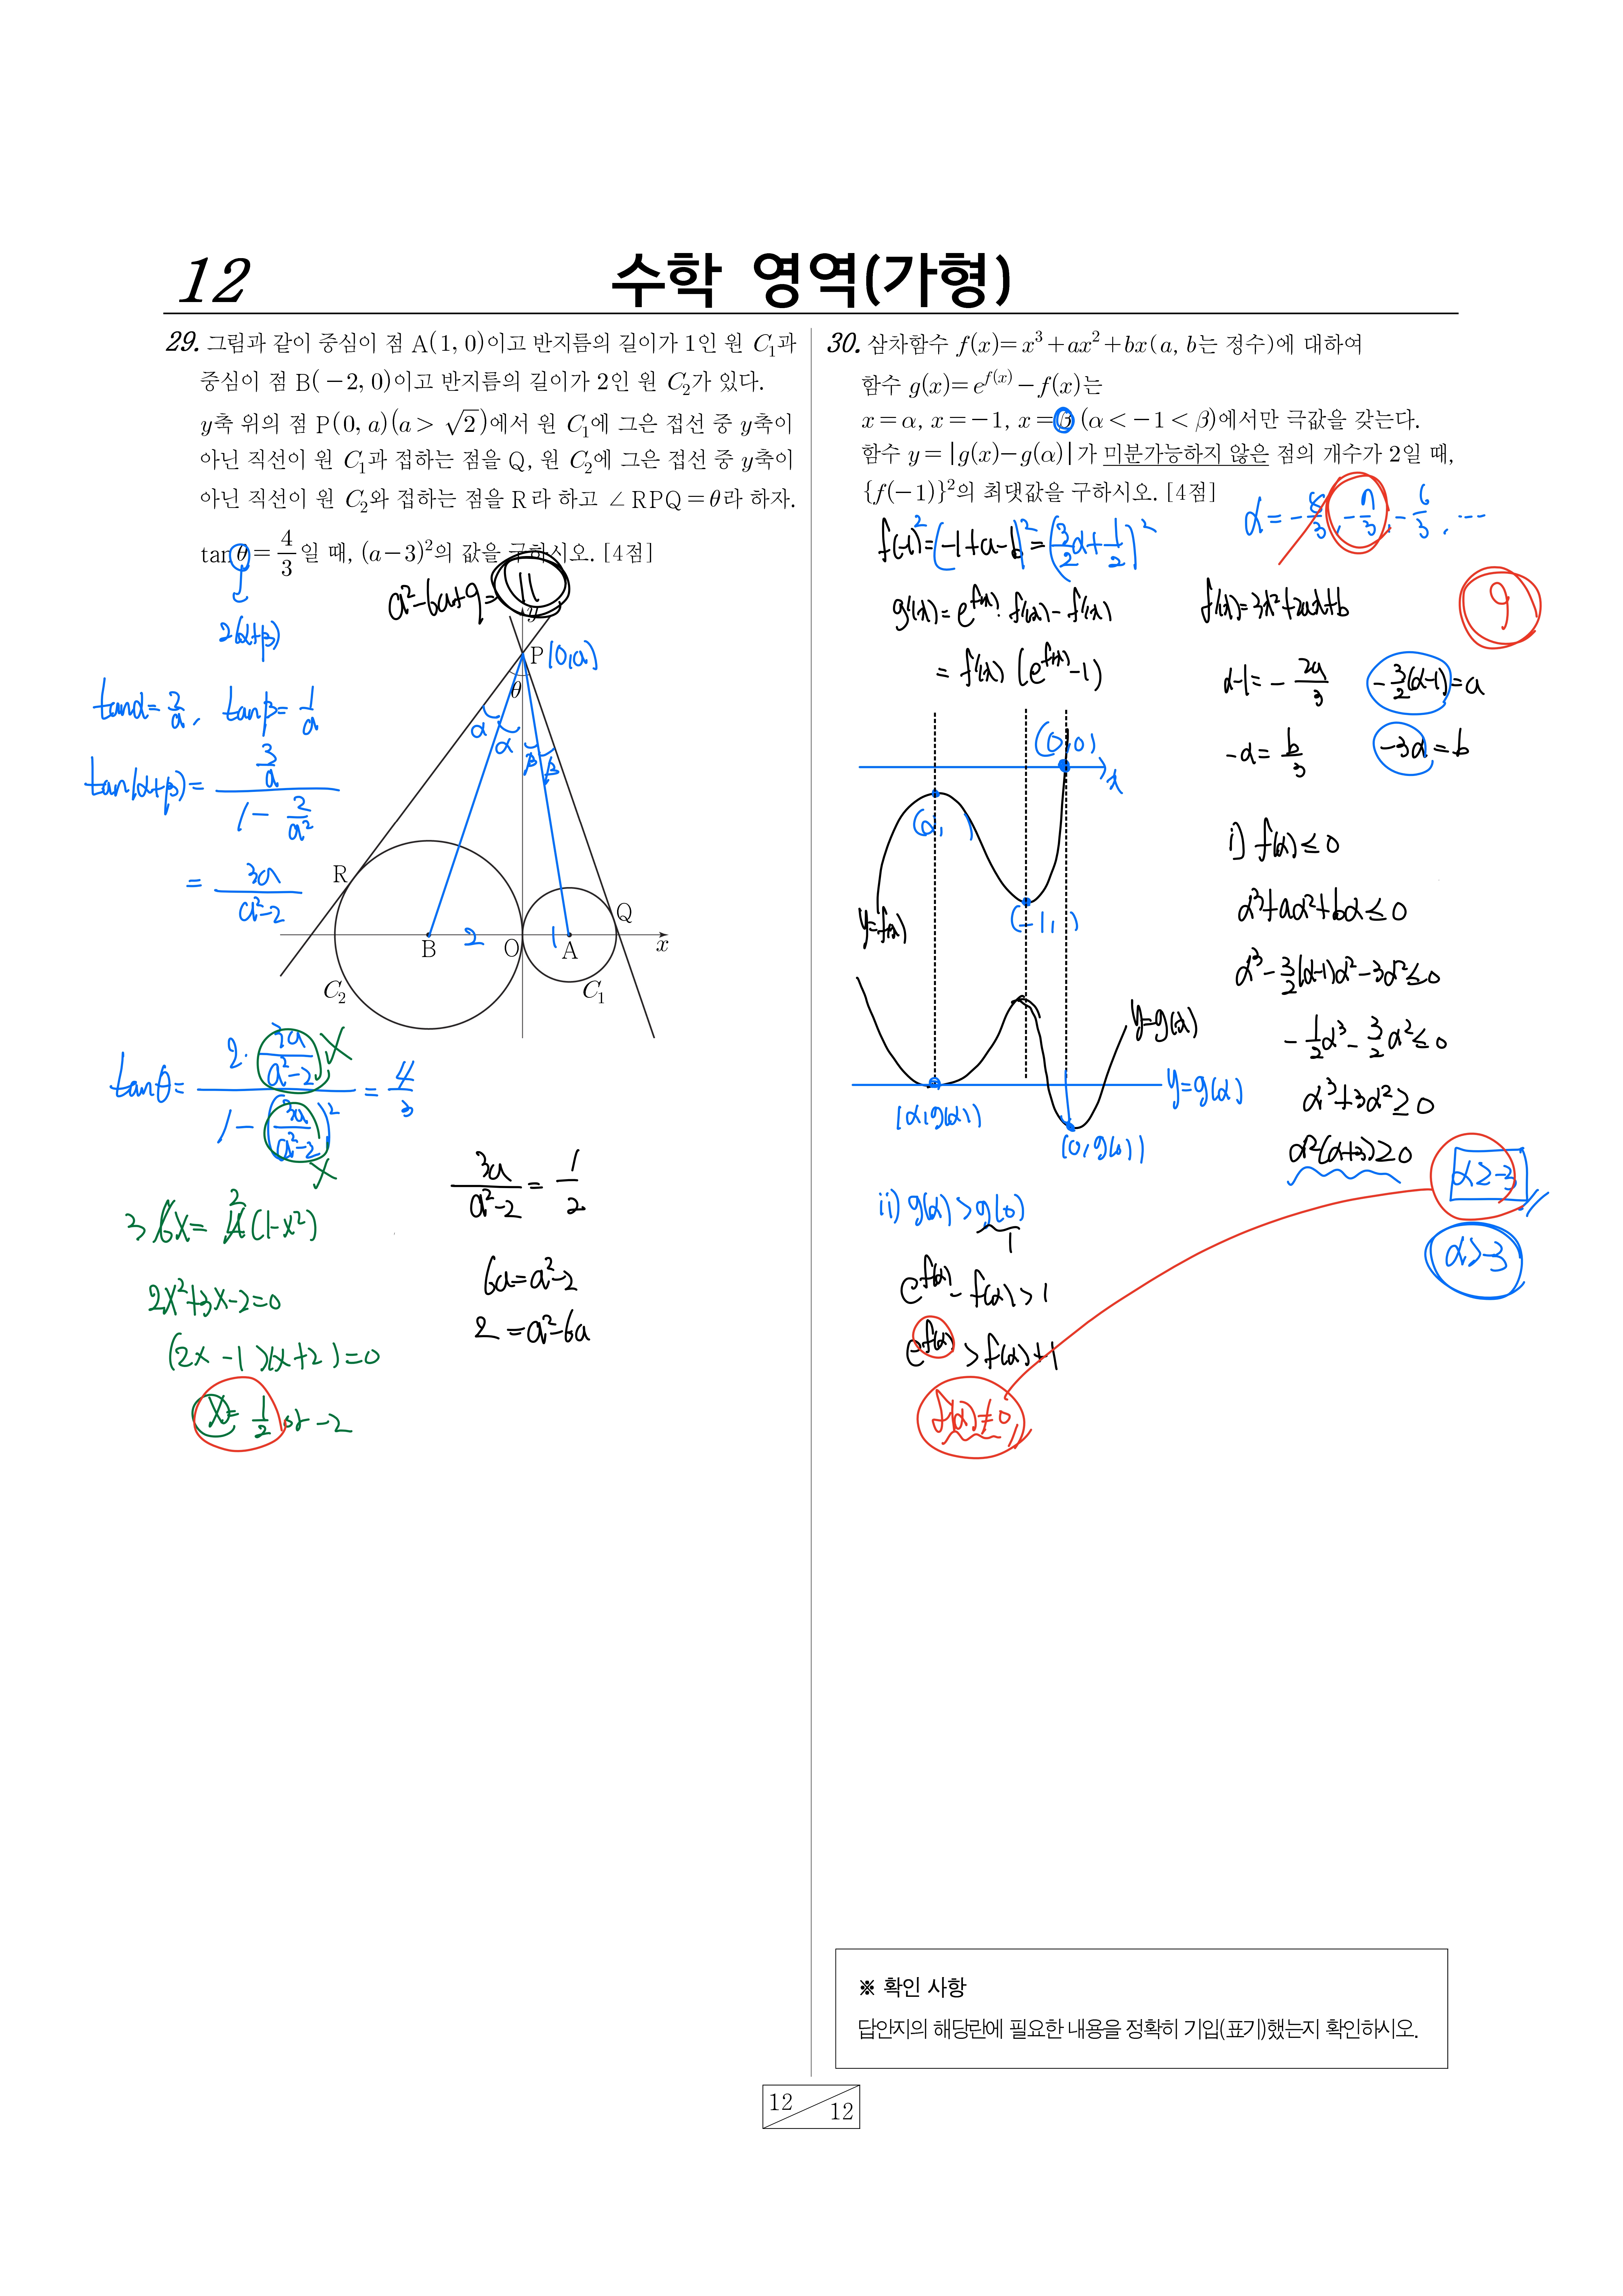 12
수학 영역(가형)
29. 그림과 같이 중심이 점 A(1, 0)이고 반지름의 길이가 1인 원 C₁과
중심이 점 B(−2, 0)이고 반지름의 길이가 2인 원 C₂가 있다.
y축 위의 점 P(0, a)(a > √2)에서 원 C₁에 그은 접선 중 y축이
아닌 직선이 원 C₁과 접하는 점을 Q, 원 C₂에 그은 접선 중 y축이
아닌 직선이 원 C₂와 접하는 점을 R라 하고 ∠RPQ = θ라 하자.
tan θ = 4/3일 때, (a−3)²의 값을 구하시오. [4점]
2(α+β)
a²−6a+9=11
y
P (0,a)
θ
α α β β
tanα=2/a, tanβ=1/a
tan(α+β)= (3/a)/(1−2/a²)
= 3a/(a²−2)
R
Q
B 2 O 1 A x
C₂ C₁
tanθ= (2·3a/(a²−2))/(1−(3a/(a²−2))²) = 4/3
X
X
3 6X= 4 2 (1−X²)
2X²+3X−2=0
(2X −1)(X+2)=0
X= 1/2 or −2
3a/(a²−2) = 1/2
6a=a²−2
2 =a²−6a
30. 삼차함수 f(x)=x³+ax²+bx(a, b는 정수)에 대하여
함수 g(x)=e^f(x)−f(x)는
x=α, x=−1, x=β (α<−1<β)에서만 극값을 갖는다.
함수 y=|g(x)−g(α)|가 미분가능하지 않은 점의 개수가 2일 때,
{f(−1)}²의 최댓값을 구하시오. [4점]
α = −8/3, −7/3, −6/3, ⋯
f(−1)²=(−1+a−b)²=(3/2α+1/2)²
g'(x)= e^f(x)·f'(x)−f'(x)
= f'(x) (e^f(x)−1)
f'(x)=3x²+2ax+b
9
α−1= −2a/3
−3/2(α−1)=a
−α= b/3
−3α=b
(0,0)
x
(α, )
(−1, )
y=f(x)
y=g(x)
y=g(α)
(α,g(α))
(0,g(0))
i) f(α)≤0
α³+aα²+bα≤0
α³−3/2(α−1)α²−3α²≤0
−1/2α³−3/2α²≤0
α³+3α²≥0
α²(α+3)≥0
α≥−3
α>−3
ii) g(α)>g(0)
1
e^f(α)−f(α)>1
e^f(α)>f(α)+1
f(α)≠0
※ 확인 사항
답안지의 해당란에 필요한 내용을 정확히 기입(표기)했는지 확인하시오.
12
12